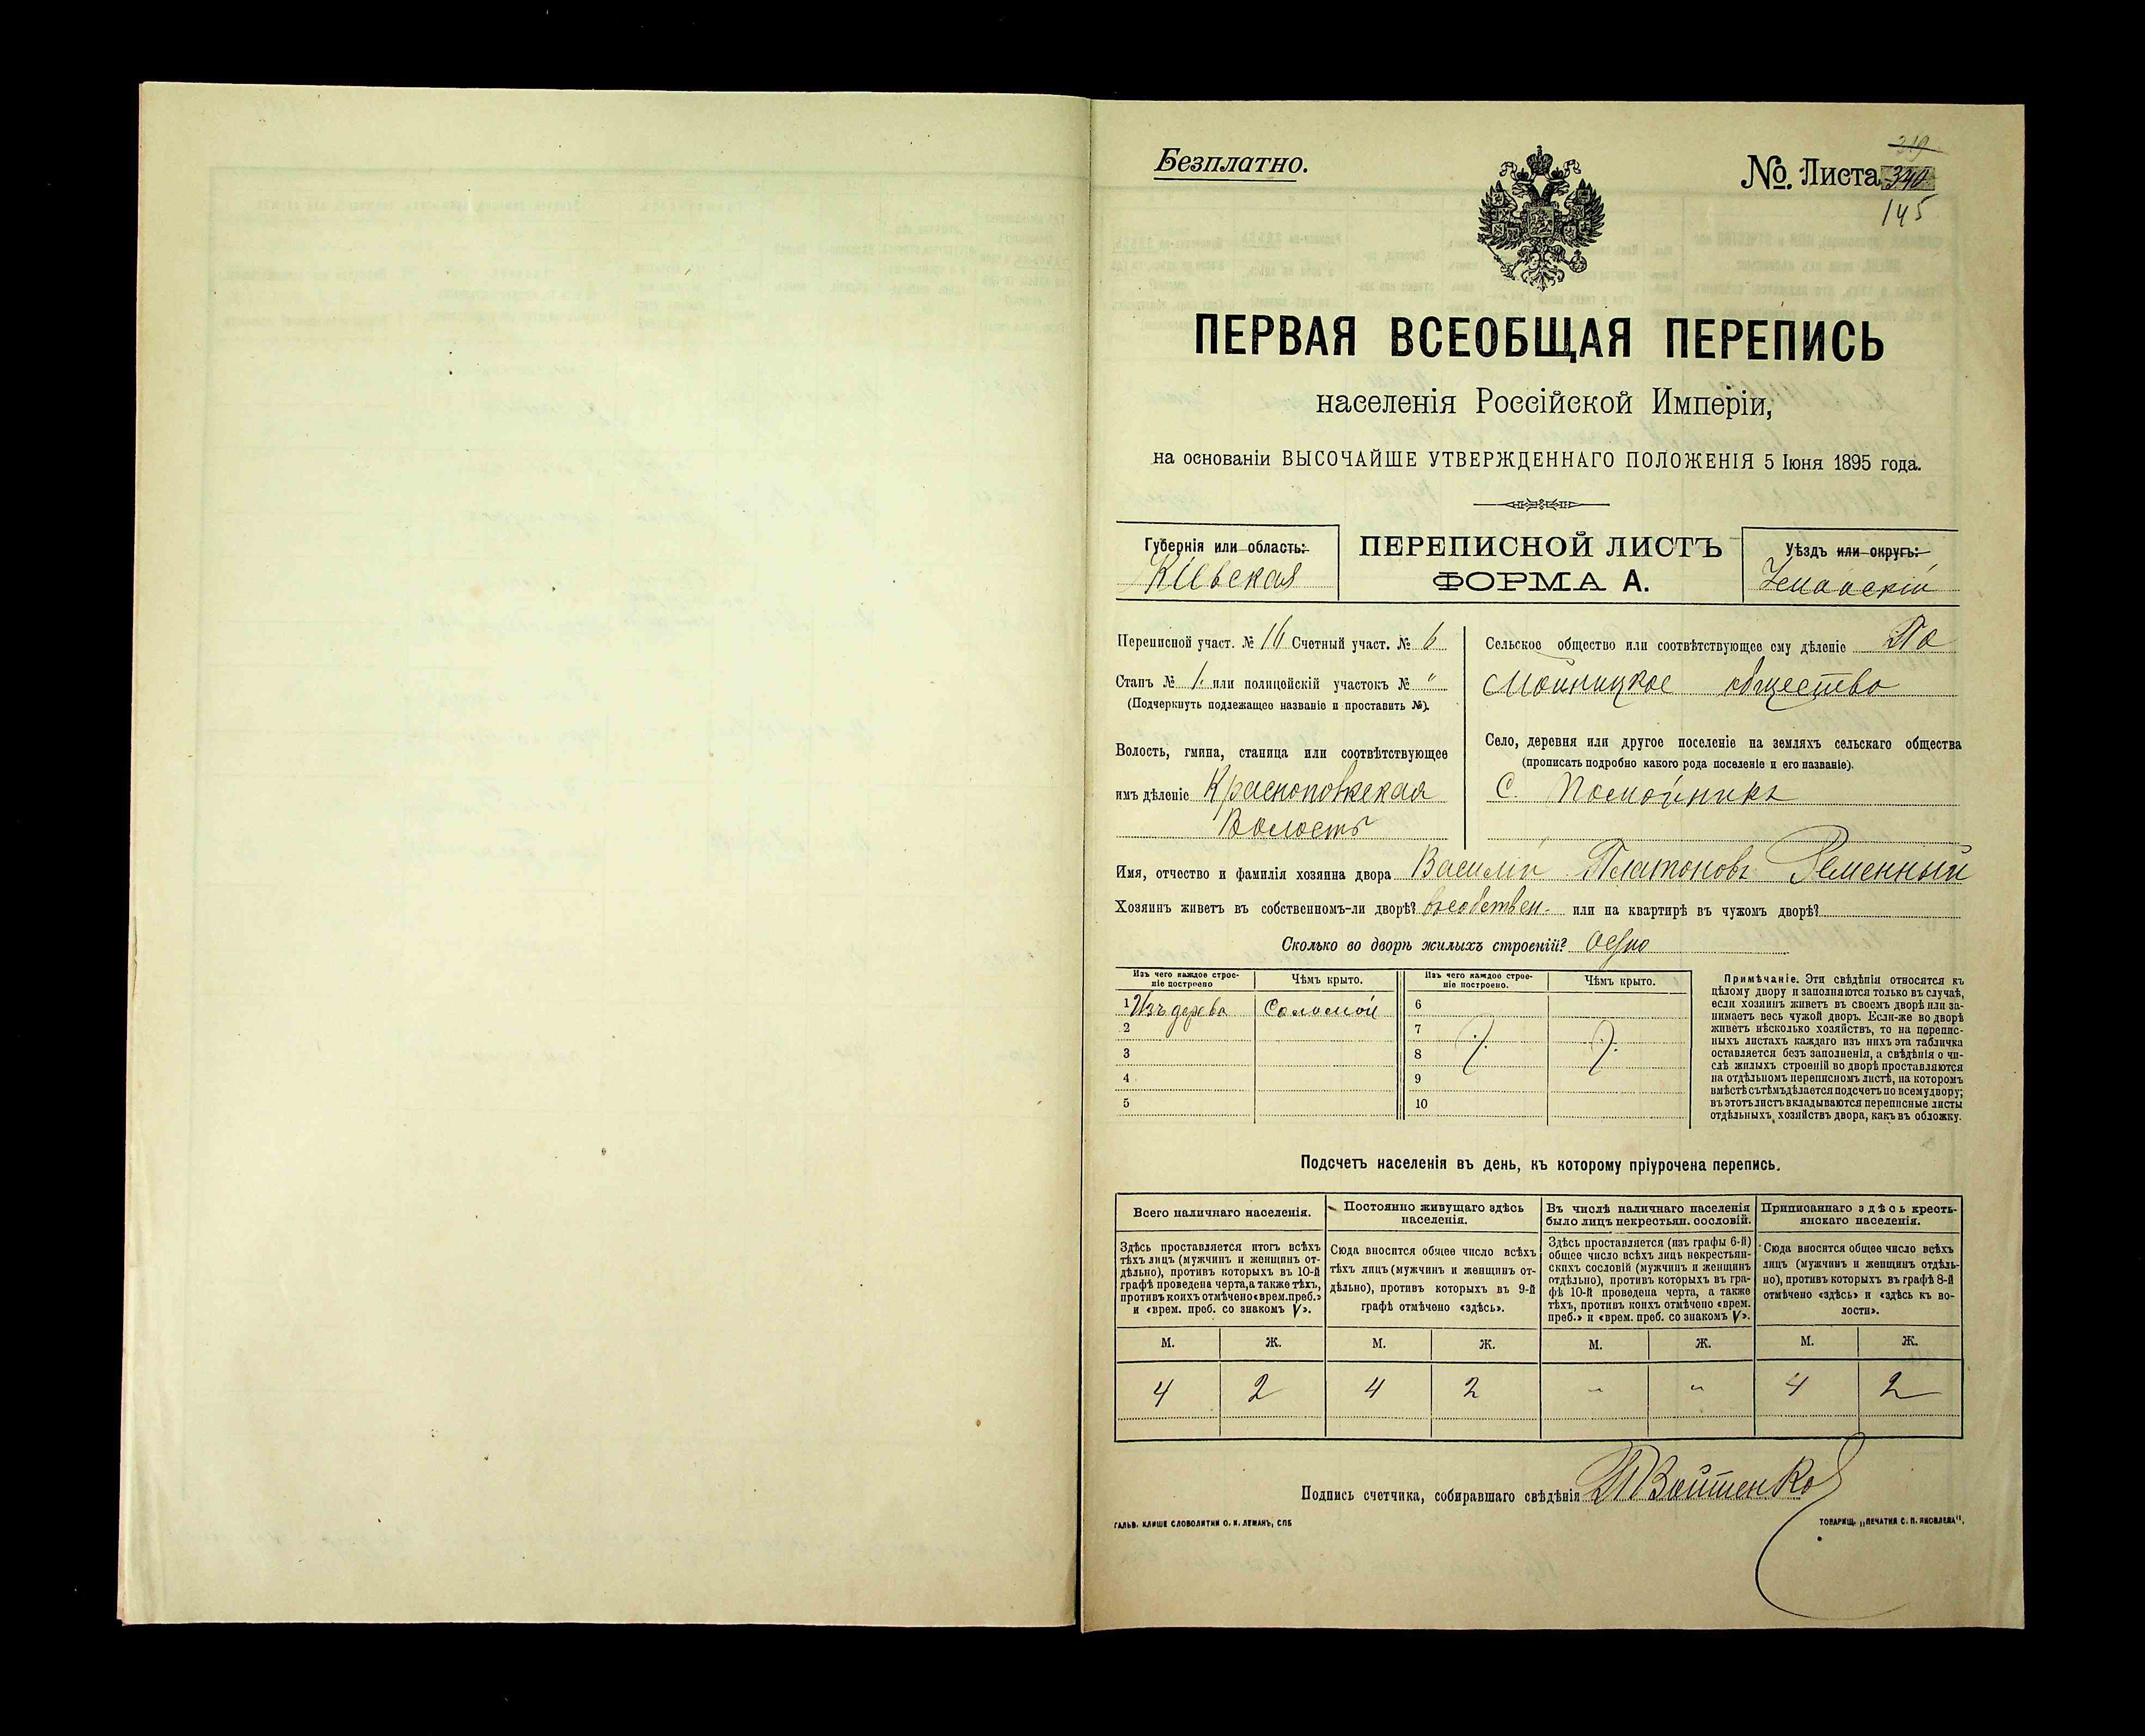 Безплатно.
№. Листа 340
319
145
ПЕРВАЯ ВСЕОБЩАЯ ПЕРЕПИСЬ
населенія Россійской Имперіи,
на основаніи ВЫСОЧАЙШЕ УТВЕРЖДЕННАГО ПОЛОЖЕНІЯ 5 Іюня 1895 года.
Губернія или область:
Кіевская
ПЕРЕПИСНОЙ ЛИСТЪ
ФОРМА А.
Уѣздъ или округъ:
Уманскій
Переписной участ. № 16 Счетный участ. № 6
Станъ № 1. или полицейскій участокъ № "
(Подчеркнуть подлежащее названіе и проставить №).
Волость, гмина, станица или соотвѣтствующее
имъ дѣленіе Краснопольская
Волость
Сельское общество или соотвѣтствующее ему дѣленіе По
мойницкое общество
Село, деревня или другое поселеніе на земляхъ сельскаго общества
(прописать подробно какого рода поселеніе и его названіе).
С. Помойникъ
Имя, отчество и фамилія хозяина двора Василій Платоновъ Ременный
Хозяинъ живетъ въ собственномъ-ли дворѣ? въ собствен. или на квартирѣ въ чужомъ дворѣ?
Сколько во дворѣ жилыхъ строеній? Одно
Изъ чего каждое строе-
ніе построено
Чѣмъ крыто.
Изъ чего каждое строе-
ніе построено.
Чѣмъ крыто.
1 Изъ дерева Соломой
2
3
4
5
6
7
8
9
10
Примѣчаніе. Эти свѣдѣнія относятся къ
цѣлому двору и заполняются только въ случаѣ,
если хозяинъ живетъ въ своемъ дворѣ или за-
нимаетъ весь чужой дворъ. Если-же во дворѣ
живетъ нѣсколько хозяйствъ, то на перепис-
ныхъ листахъ каждаго изъ нихъ эта табличка
оставляется безъ заполненія, а свѣдѣнія о чи-
слѣ жилыхъ строеній во дворѣ проставляются
на отдѣльномъ переписномъ листѣ, на которомъ
вмѣстѣ съ тѣмъ дѣлается подсчетъ по всему двору;
въ этотъ листъ вкладываются переписные листы
отдѣльныхъ хозяйствъ двора, какъ въ обложку.
Подсчетъ населенія въ день, къ которому пріурочена перепись.
Всего наличнаго населенія.
Здѣсь проставляется итогъ всѣхъ
тѣхъ лицъ (мужчинъ и женщинъ от-
дѣльно), противъ которыхъ въ 10-й
графѣ проведена черта, а также тѣхъ,
противъ коихъ отмѣчено «врем. преб.»
и «врем. преб. со знакомъ V».
Постоянно живущаго здѣсь
населенія.
Сюда вносится общее число всѣхъ
тѣхъ лицъ (мужчинъ и женщинъ от-
дѣльно), противъ которыхъ въ 9-й
графѣ отмѣчено «здѣсь».
Въ числѣ наличнаго населенія
было лицъ некрестьян. сословій.
Здѣсь проставляется (изъ графы 6-й)
общее число всѣхъ лицъ некрестьян-
скихъ сословій (мужчинъ и женщинъ
отдѣльно), противъ которыхъ въ гра-
фѣ 10-й проведена черта, а также
тѣхъ, противъ коихъ отмѣчено «врем.
преб.» и «врем. преб. со знакомъ V».
Приписаннаго здѣсь кресть-
янскаго населенія.
Сюда вносится общее число всѣхъ
лицъ (мужчинъ и женщинъ отдѣль-
но), противъ которыхъ въ графѣ 8-й
отмѣчено «здѣсь» и «здѣсь къ во-
лости».
М. Ж. М. Ж. М. Ж. М. Ж.
4 2 4 2 " " 4 2
Подпись счетчика, собиравшаго свѣдѣнія Войтенко
ГАЛЬВ. КЛИШЕ СЛОВОЛИТНИ О. И. ЛЕМАНЪ, СПБ
ТОВАРИЩ. „ПЕЧАТНЯ С. П. ЯКОВЛЕВА".